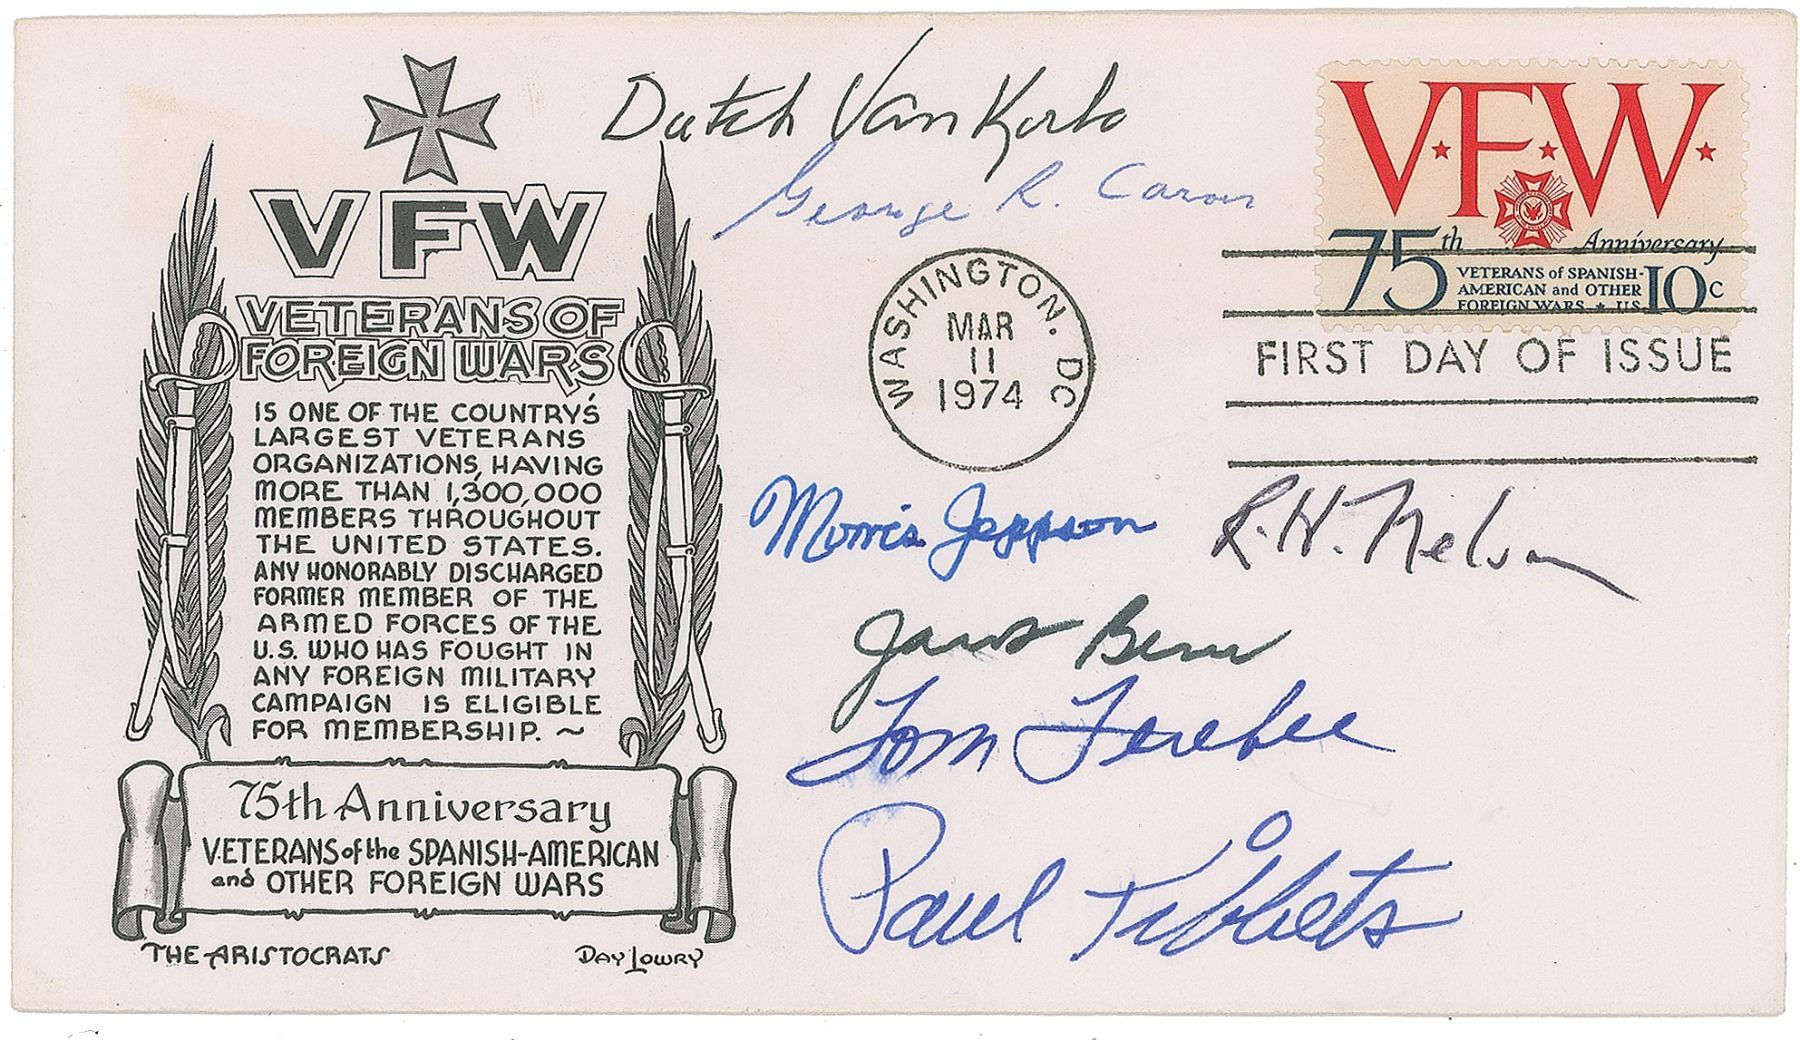 Dutch Van Kirk
George R. Caron
VFW
VETERANS OF
FOREIGN WARS
IS ONE OF THE COUNTRY'S
LARGEST VETERANS
ORGANIZATIONS, HAVING
MORE THAN 1,300,000
MEMBERS THROUGHOUT
THE UNITED STATES.
ANY HONORABLY DISCHARGED
FORMER MEMBER OF THE
ARMED FORCES OF THE
U.S. WHO HAS FOUGHT IN
ANY FOREIGN MILITARY
CAMPAIGN IS ELIGIBLE
FOR MEMBERSHIP. ~
75th Anniversary
VETERANS of the SPANISH-AMERICAN
and OTHER FOREIGN WARS
THE ARISTOCRATS
DAY LOWRY
WASHINGTON, DC
MAR
11
1974
V·F·W·
75th Anniversary
VETERANS of SPANISH-
AMERICAN and OTHER
FOREIGN WARS ★ U.S. 10c
FIRST DAY OF ISSUE
Morris Jeppson
R. H. Nelson
Tom Ferebee
Paul Tibbets